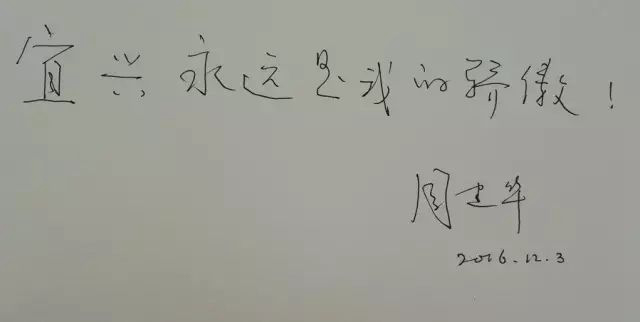 宜兴永远是我的骄傲！
周建华
2016.12.3